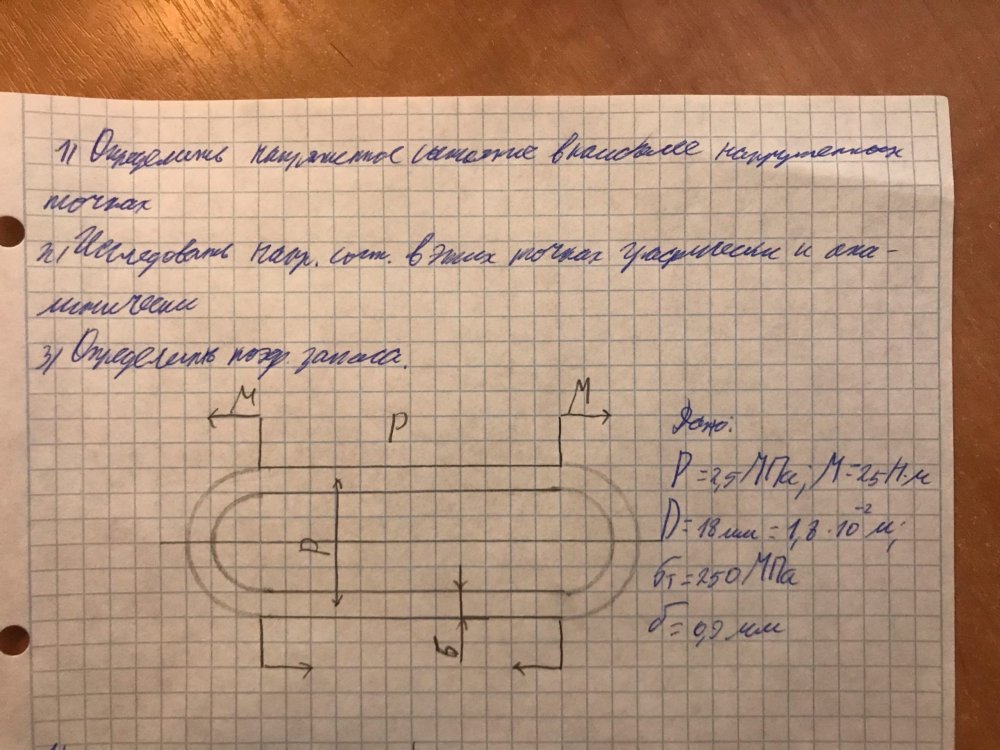 1) Определить напряжённое состояние в наиболее нагруженных
точках
2) Исследовать напр. сост. в этих точках графически и ана-
литически
3) Определить коэф. запаса.
M
M
P
Дано:
P = 2,5 МПа; M = 25 Н·м
D = 18 мм = 1,8 · 10⁻² м;
D
σт = 250 МПа
δ = 0,9 мм
δ